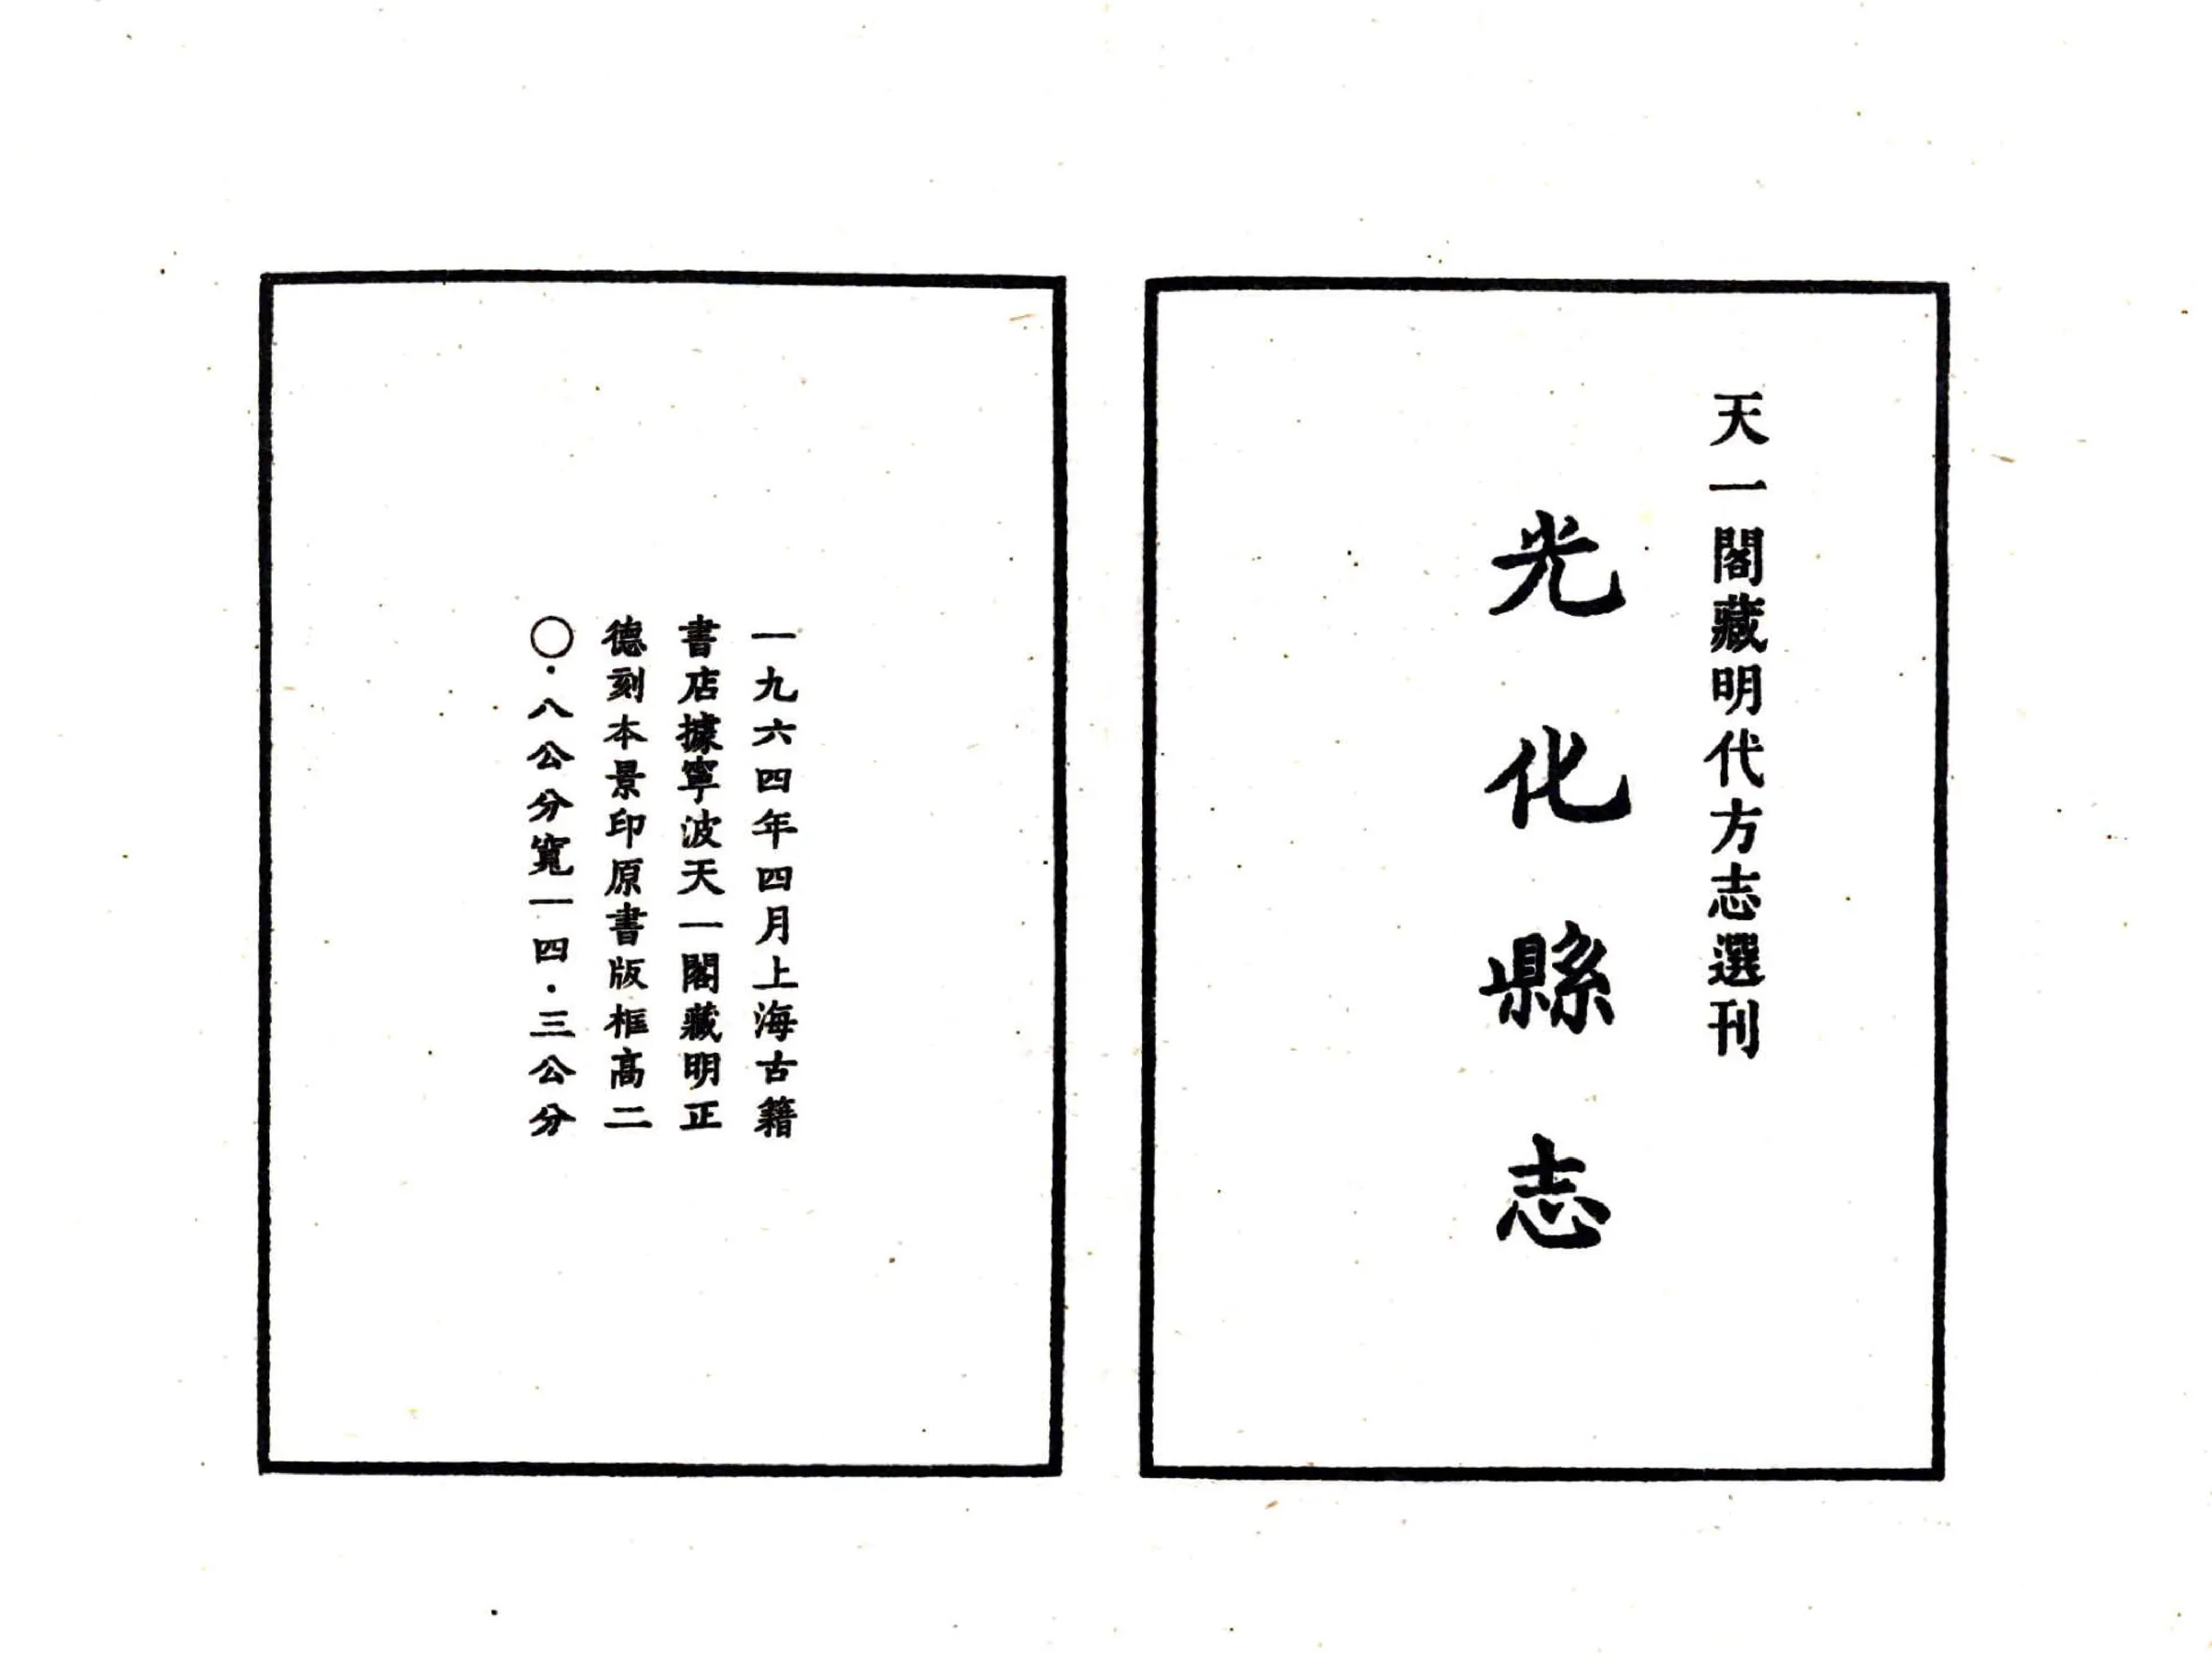 天一閣藏明代方志選刊
光化縣志
一九六四年四月上海古籍
書店據寧波天一閣藏明正
德刻本景印原書版框高二
〇·八公分寬一四·三公分